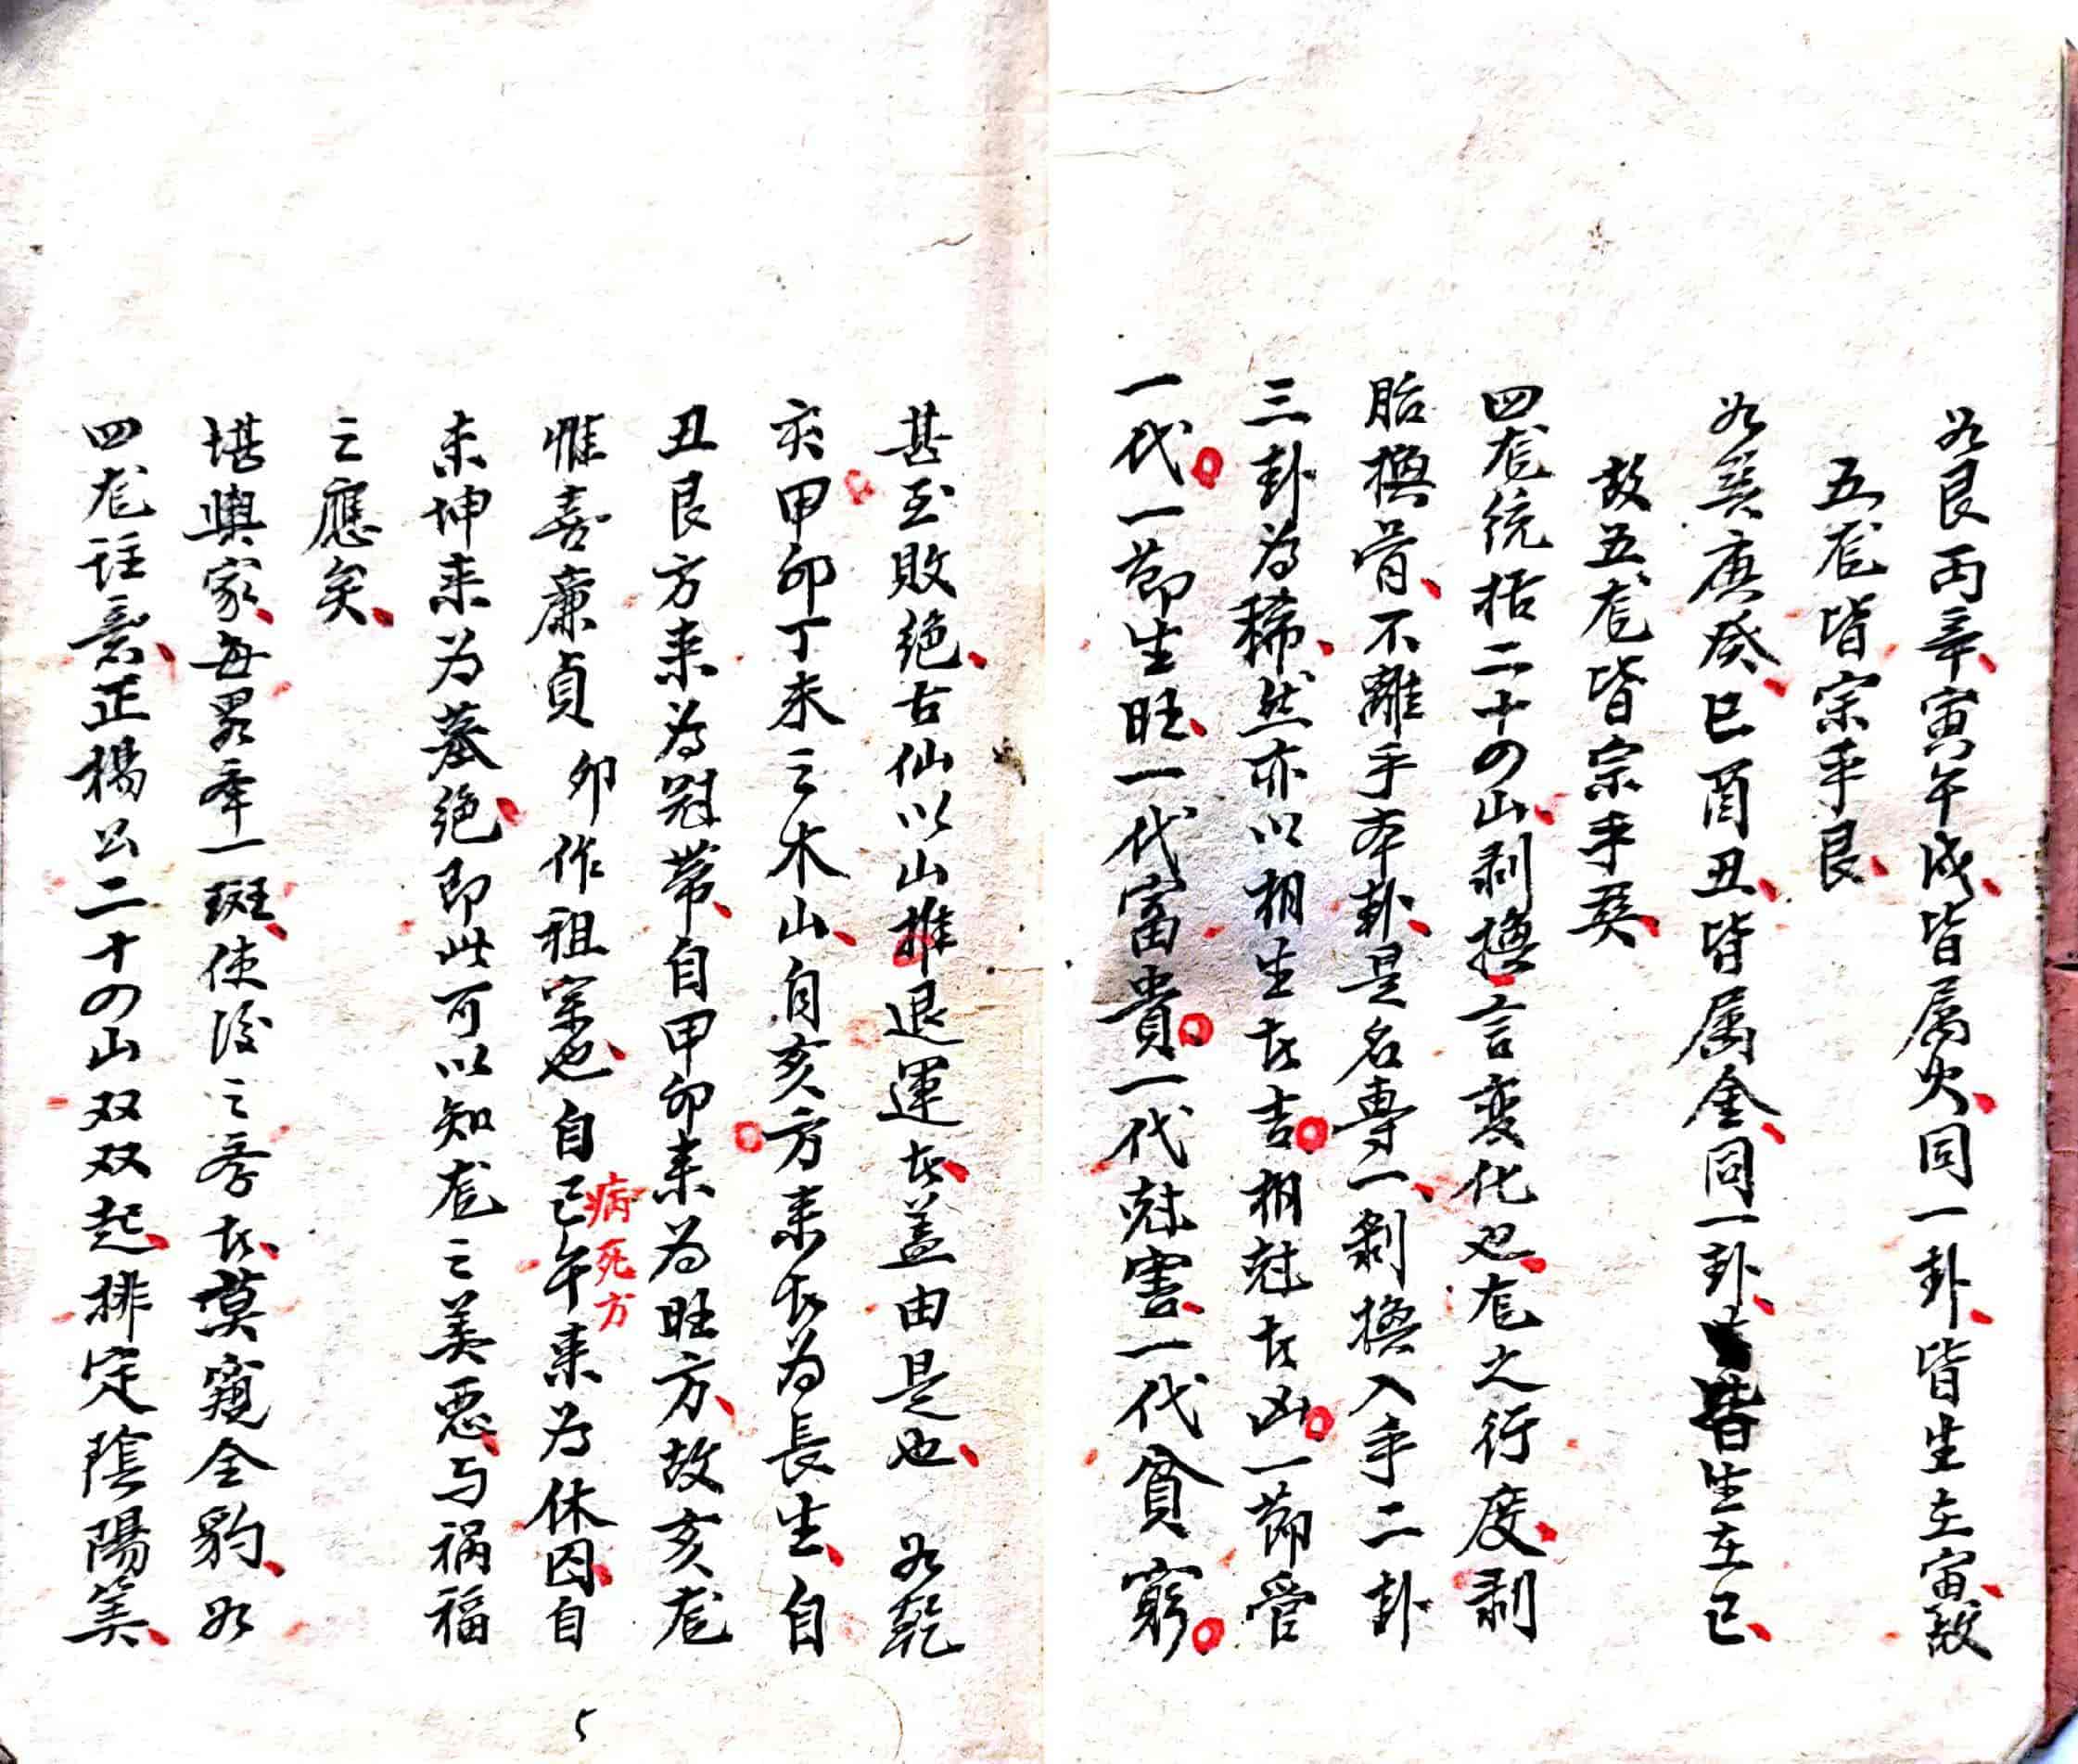 如艮丙辛寅午戌皆属火同一卦皆生在寅故
五龙皆宗乎艮
如巽庚癸巳酉丑皆属金同一卦皆生在巳
故五龙皆宗乎巽
四龙统括二十四山剥换言变化也龙之行度剥
胎换骨不離乎本卦是名專一剥换入手二卦
三卦为稀然亦以相生者吉相尅者凶一節管
一代一節生旺一代富貴一代尅害一代貧窮
甚至敗绝古仙以山推退運者盖由是也 如乾
亥甲卯丁未之木山自亥方来者为長生自
丑艮方来为冠带自甲卯来为旺方故亥龙
惟喜廉貞 卯作祖宗也自巳午来为休囚自
病死方
未坤来为墓绝即此可以知龙之美恶与祸福
之應矣
堪輿家每畧牽一斑使後之学者莫窺全豹如
四龙註意正楊公二十四山双双起排定陰陽筭
5